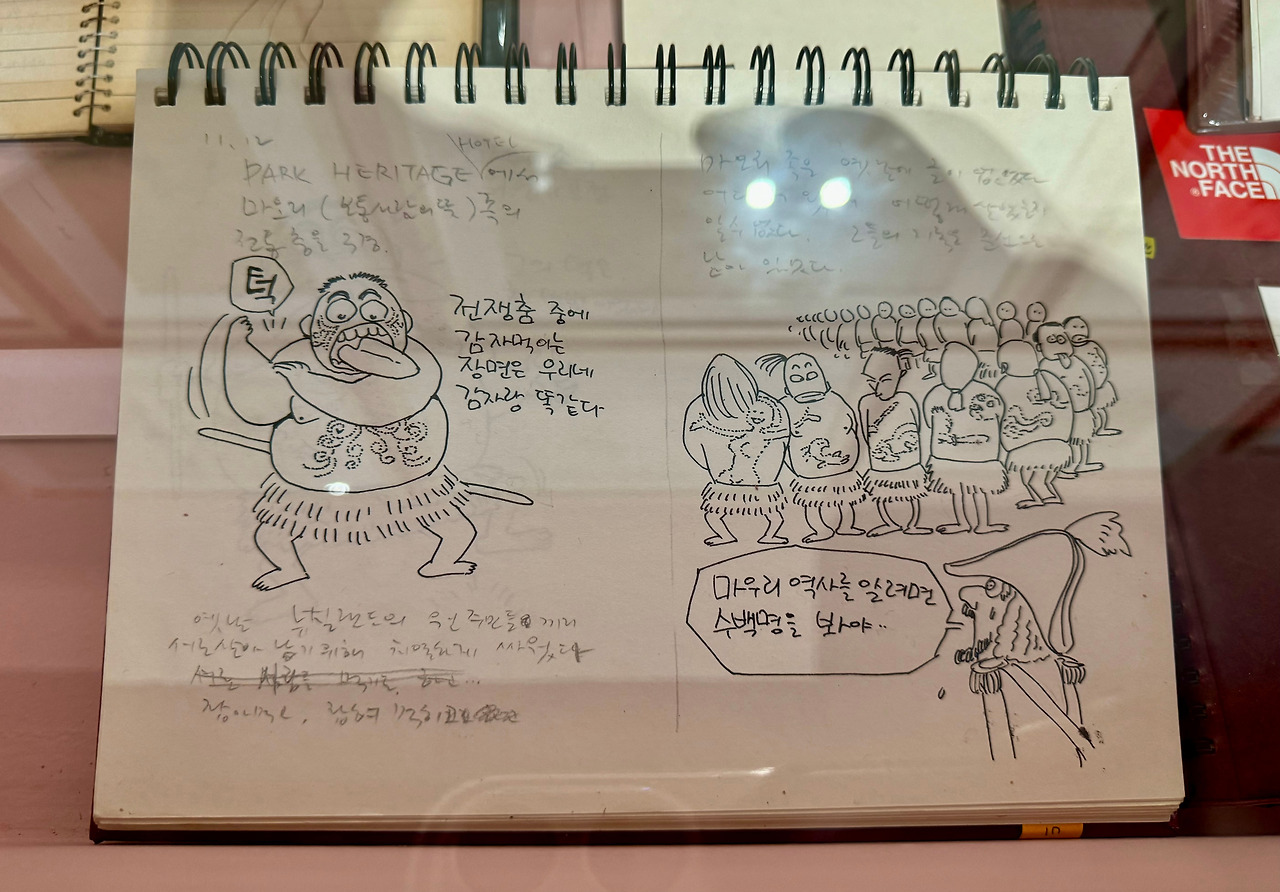 11.12
HOTEL
PARK HERITAGE 에서
마오리 (보통사람의 뜻)족의
전통 춤을 구경.
턱
전쟁춤 중에
감자먹이는
장면은 우리네
감자랑 똑같다
옛날 뉴질랜드의 원주민들 끼리
서로 살아남기 위해 치열하게 싸웠다
서로 사람을
마오리 족은 옛날에 글이 없었다
어떻게 살았는지
알 수 없었다. 그들의 기록은
남아 있었다.
마우리 역사를 알려면
수백명을 봐야..
THE
NORTH
FACE
10